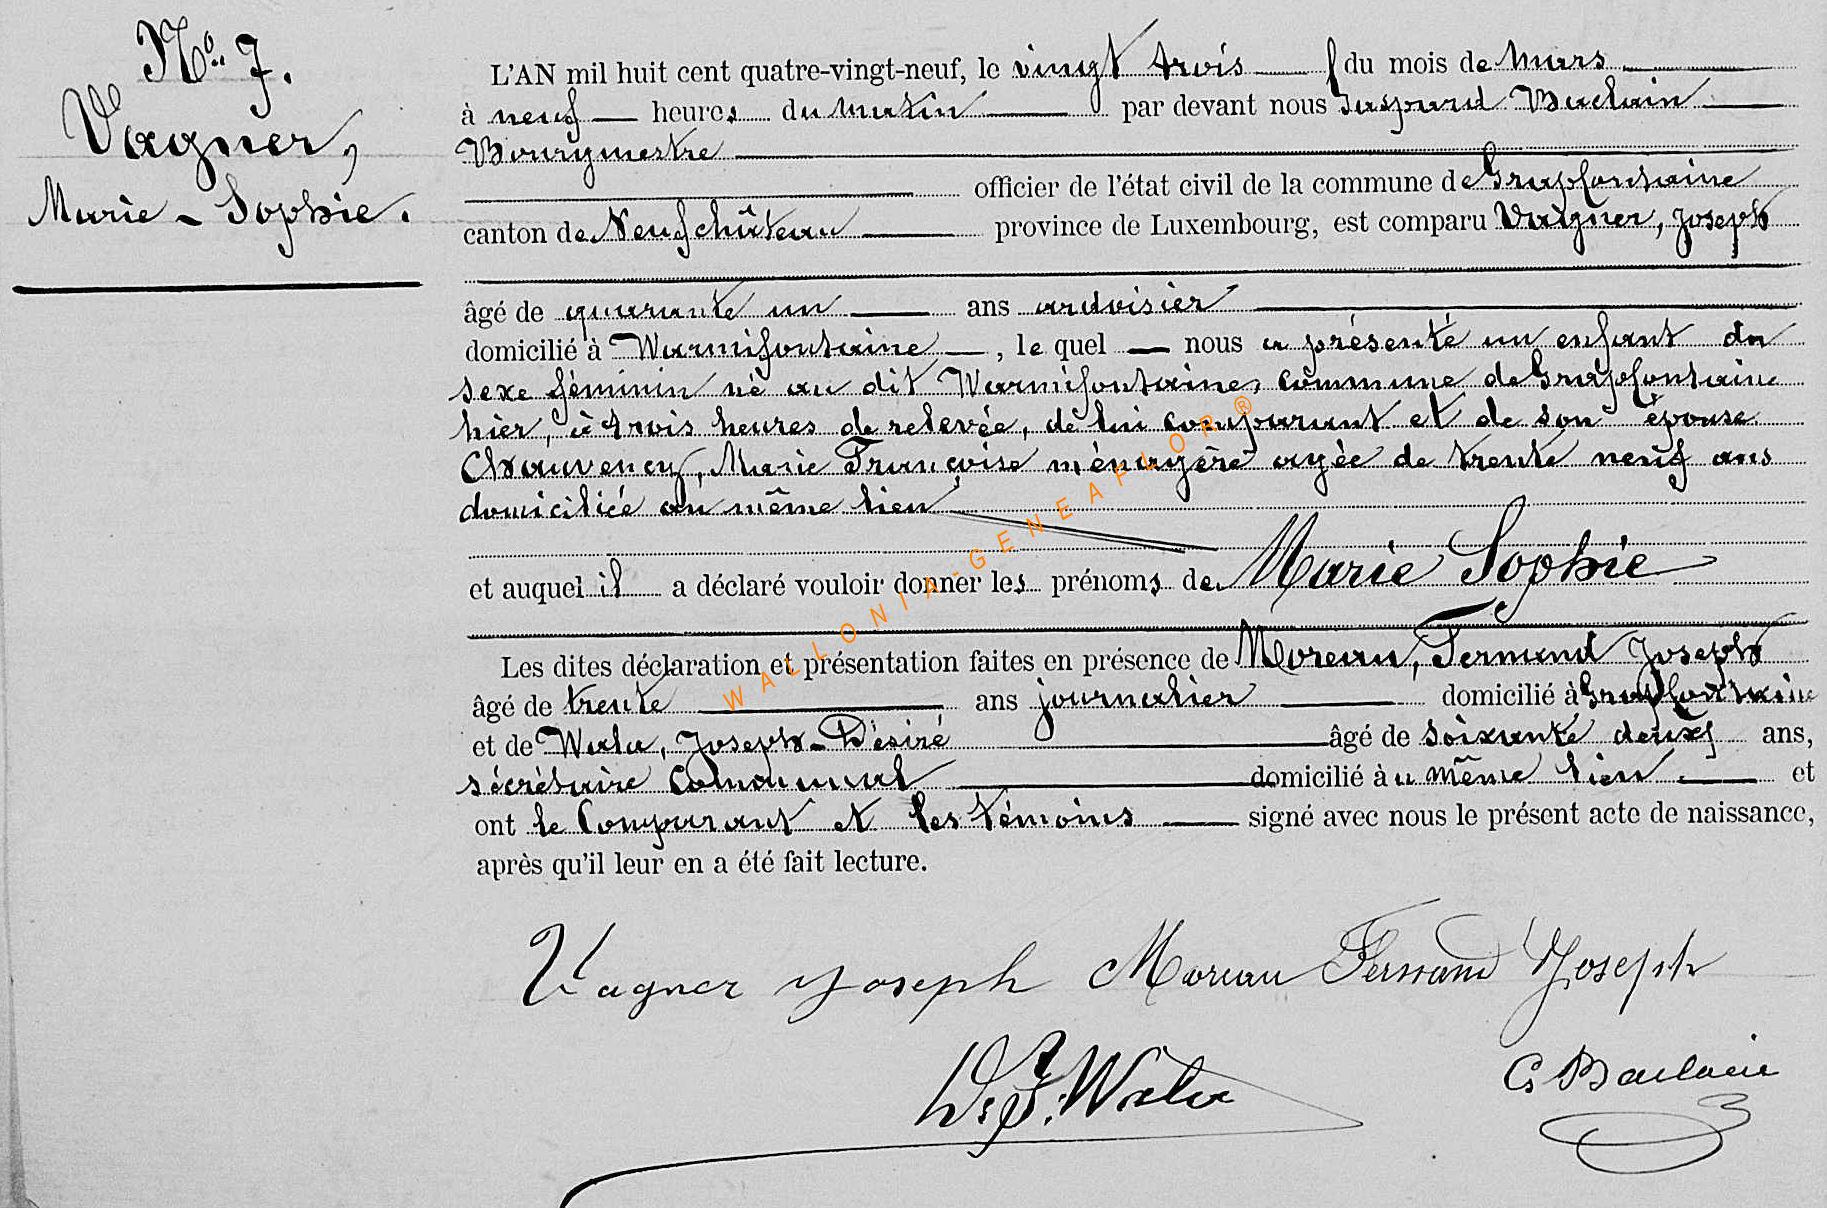 No 7.
Vagner,
Marie - Sophie.
L'AN mil huit cent quatre-vingt-neuf, le vingt trois du mois de Mars
à neuf heures du matin par devant nous Gaspard Baclain
Bourgmestre
officier de l'état civil de la commune de Grapfontaine
canton de Neufchâteau province de Luxembourg, est comparu Vagner, Joseph
âgé de quarante un ans ardoisier
domicilié à Warmifontaine, le quel nous a présenté un enfant du
sexe féminin né au dit Warmifontaine, commune de Grapfontaine
hier, à trois heures de relevée, de lui comparant et de son épouse
Chauvency, Marie Françoise ménagère agée de trente neuf ans
domiciliée au même lieu
et auquel il a déclaré vouloir donner les prénoms de Marie Sophie
Les dites déclaration et présentation faites en présence de Moreau, Fernand Joseph
âgé de trente ans journalier domicilié à Grapfontaine
et de Wala, Joseph-Désiré âgé de soixante deux ans,
sécrétaire Communal domicilié au même lieu et
ont le Comparant et les témoins signé avec nous le présent acte de naissance,
après qu'il leur en a été fait lecture.
Vagner Joseph Moreau Fernand Joseph
D. J. Wala
G Baclain
WALLONIA-GENEAFLOR ®